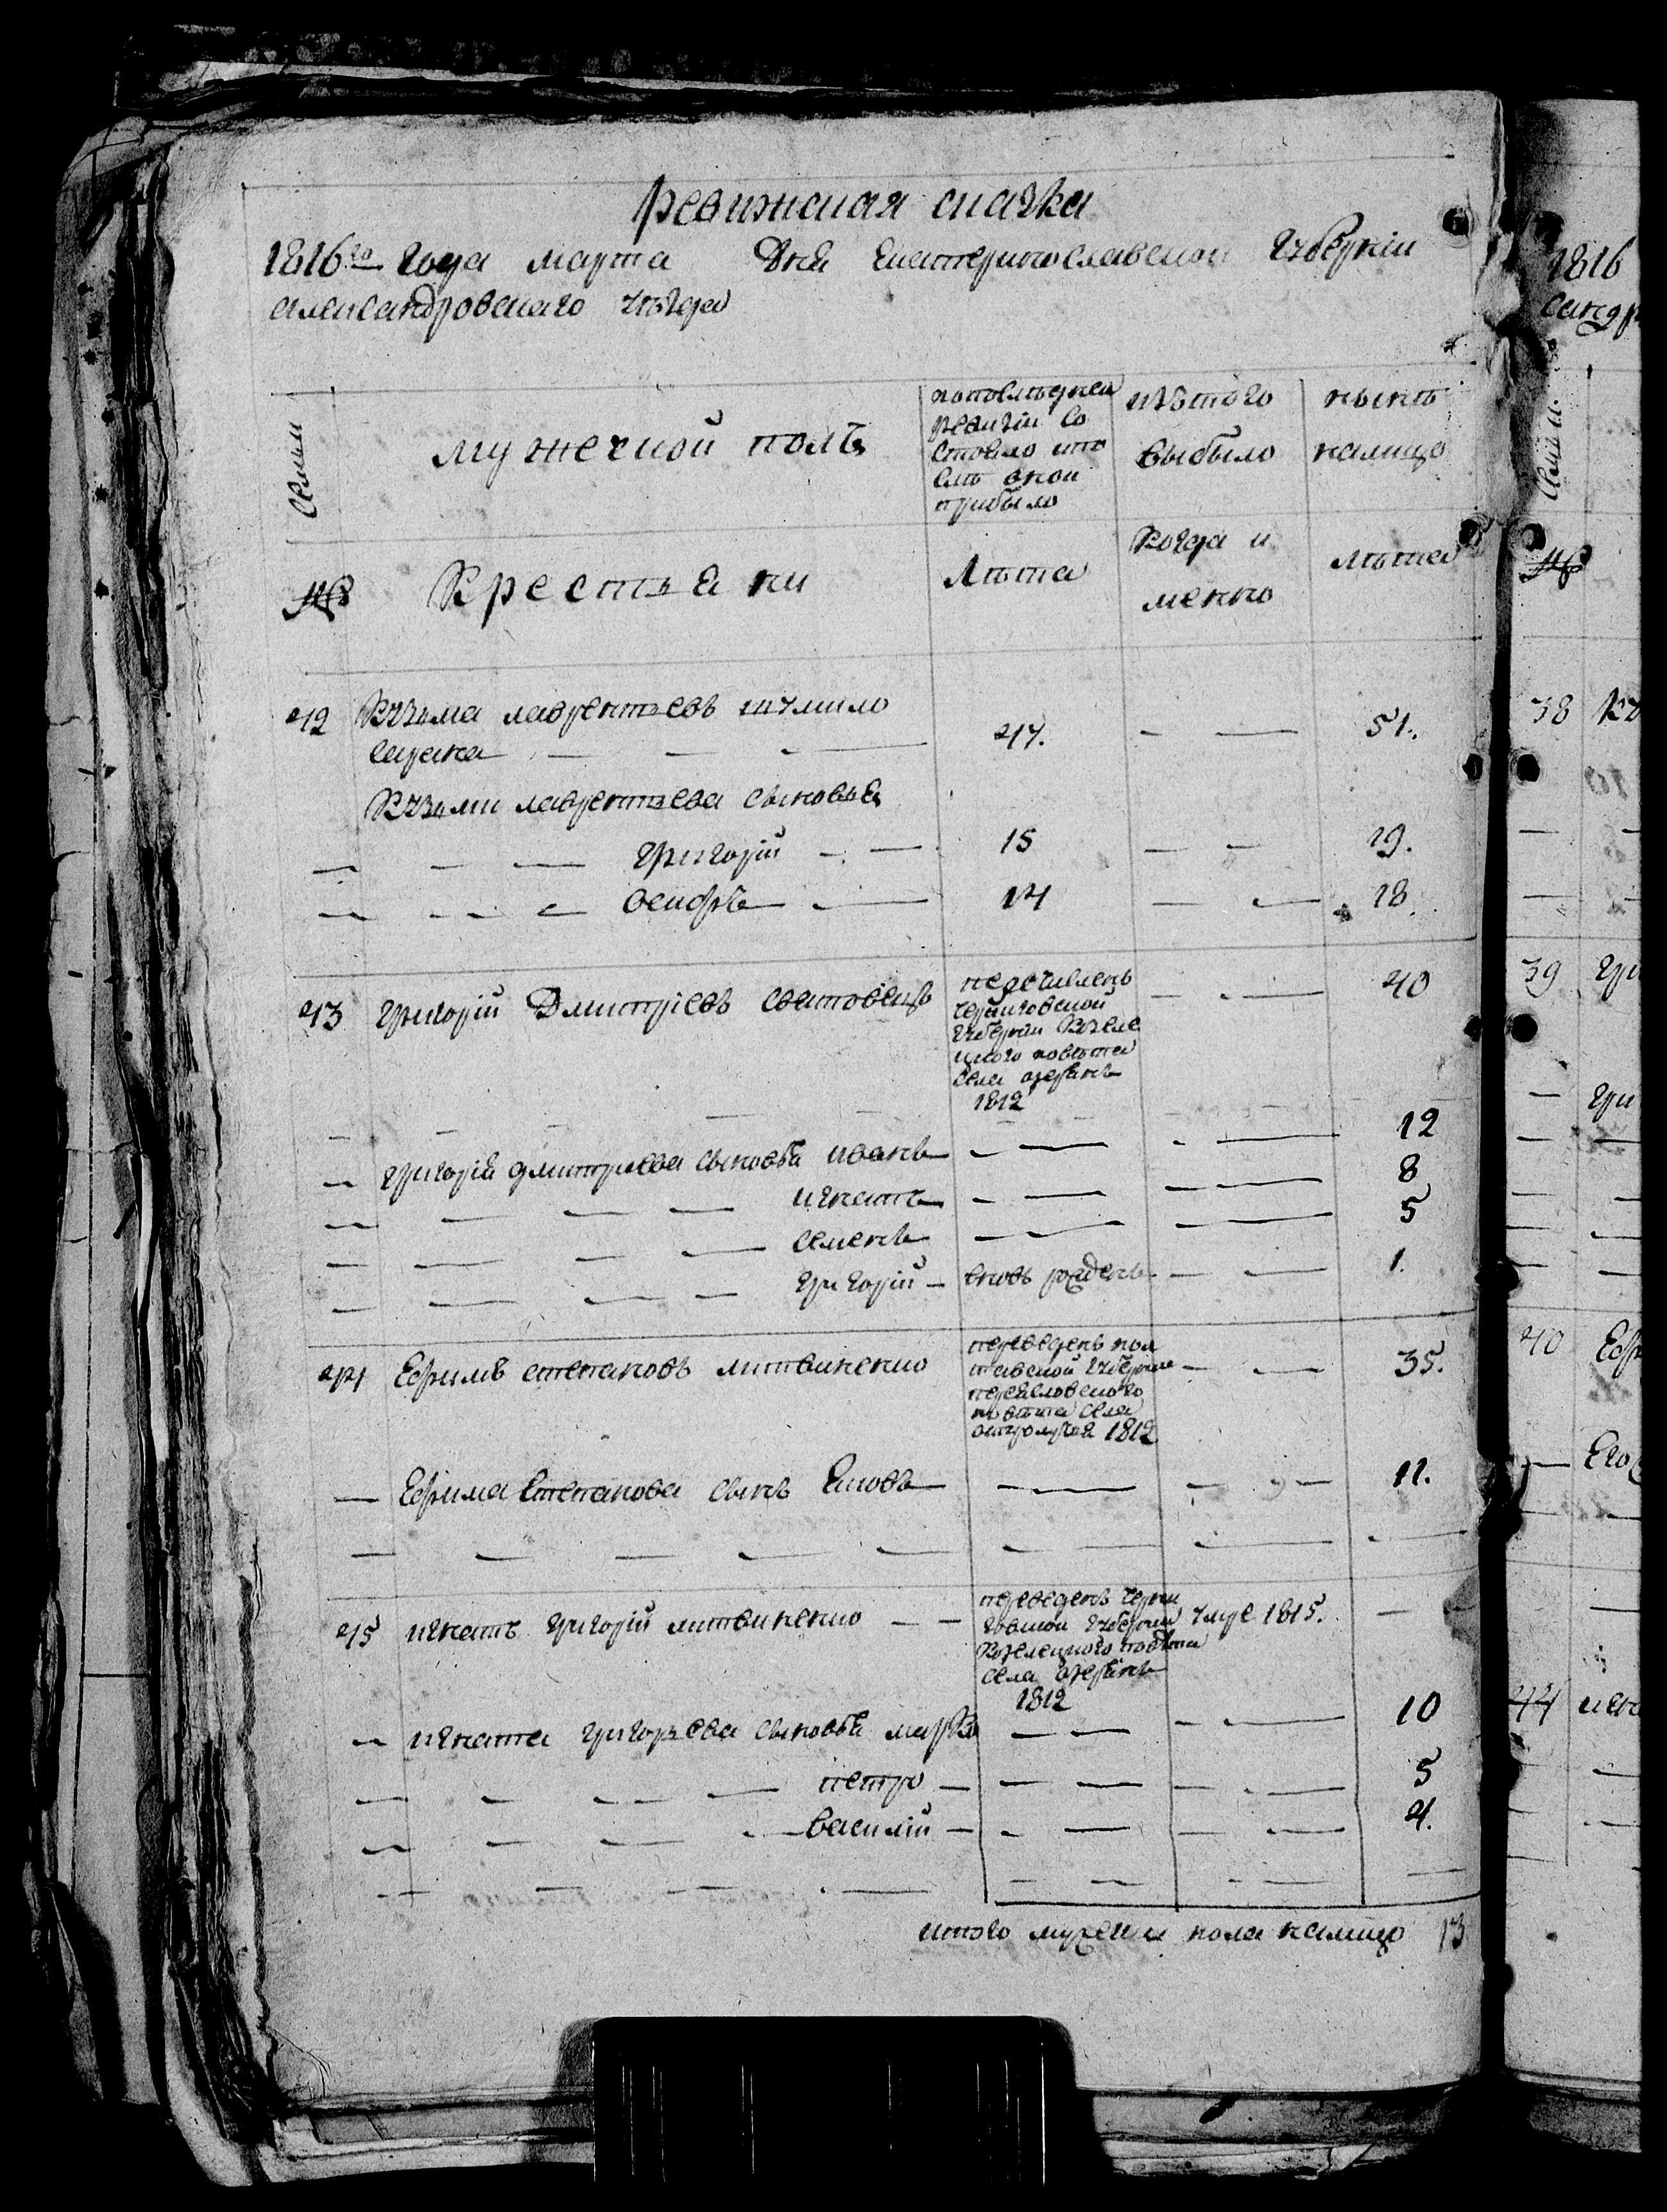 ревижская сказка
1816го года марта Дня Екатеринославской губернии
александровского уезда
Семьи
мужеской полъ
попоследней
ревизіи со
стояло ипо
слъ оной
прибыло
изтого
выбыло
нынъ
налицо
№
Крестьяни
Лъта
Когда и
менно
лъта
42 Кузьма лаврентьевъ
47. — — 51.
Кузьми лаврентьева сыновья
— — — григорій — — 15 — — 19.
— — — — осифъ — — 14 — — 18
43 григорій Дмитріевъ
переселенъ
Черниговской
губерніи Козеле
цкого повъта
села озерянъ
1812
— — 40
— григорія дмитриева сыновья иванъ — — — — 12
— — — — игнатъ — — — — 8
— — — — семенъ — — — — 5
— — — — григорій — вновь рожденъ — — 1.
44 Ефимъ степановъ литвиненко
переведенъ пол
тавской губерніи
переяславского
повъта села
1812
— — 35.
— Ефима Степанова сынъ Яковъ — — — — 11.
45 игнатъ григорій литвиненко — —
переведенъ черни
говской губерніи
Козелецкого повъта
села озерянъ
1812
умре 1815.
— игната григорьева сыновья марко — — — — 10
— — — — петро — — — — — 5
— — — — василій — — — — — 4.
итого мужска пола налицо 13
1816
Семьи.
№
38
39 гри
гри
40 Ефи
Его